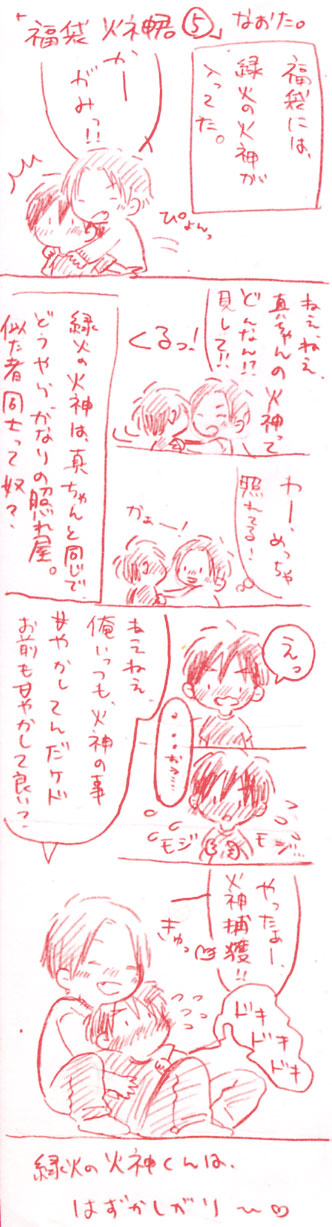 「福袋 火神君⑤」なおた。
福袋には、
緑火の火神が
入ってた。
かー
がみっ!!
ぴょんっ
ねえねえ、
真ちゃんの火神って
どんなん!?
見して!!
くるっ!
緑火の火神は、真ちゃんと同じで
どうやらかなりの照れ屋。
似た者同士って奴?
わー、めっちゃ
照れてる!
かぁー!
えっ
ねえねえ
俺いつも、火神の事
甘やかしてんだケド
お前も甘やかして良い?
モジ
モジ…
やったねー、
火神捕獲!!
きゅっ♡
ドキ
ドキ
ドキ
緑火の火神くんは、
はずかしがり〜♡